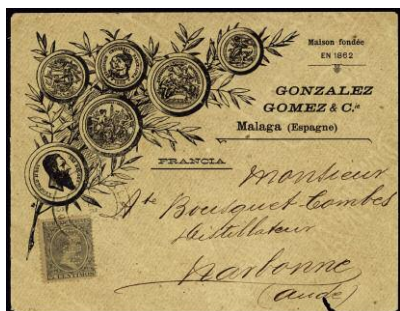 Maison fondée
EN 1862
GONZALEZ
GOMEZ & C.ie
Malaga (Espagne)
FRANCIA
Monsieur
Ate Bousquet-Combes
Distillateur
Narbonne
(Aude)
CENTIMOS